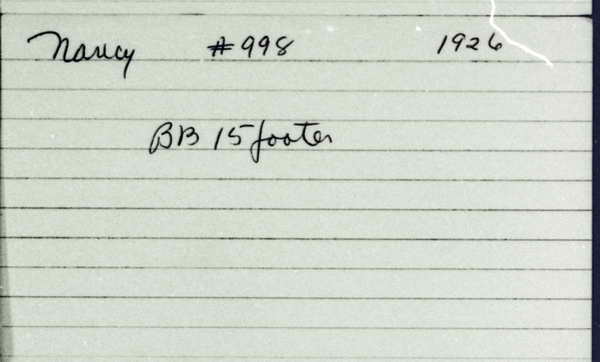 Nancy #998 1926
BB 15 footer